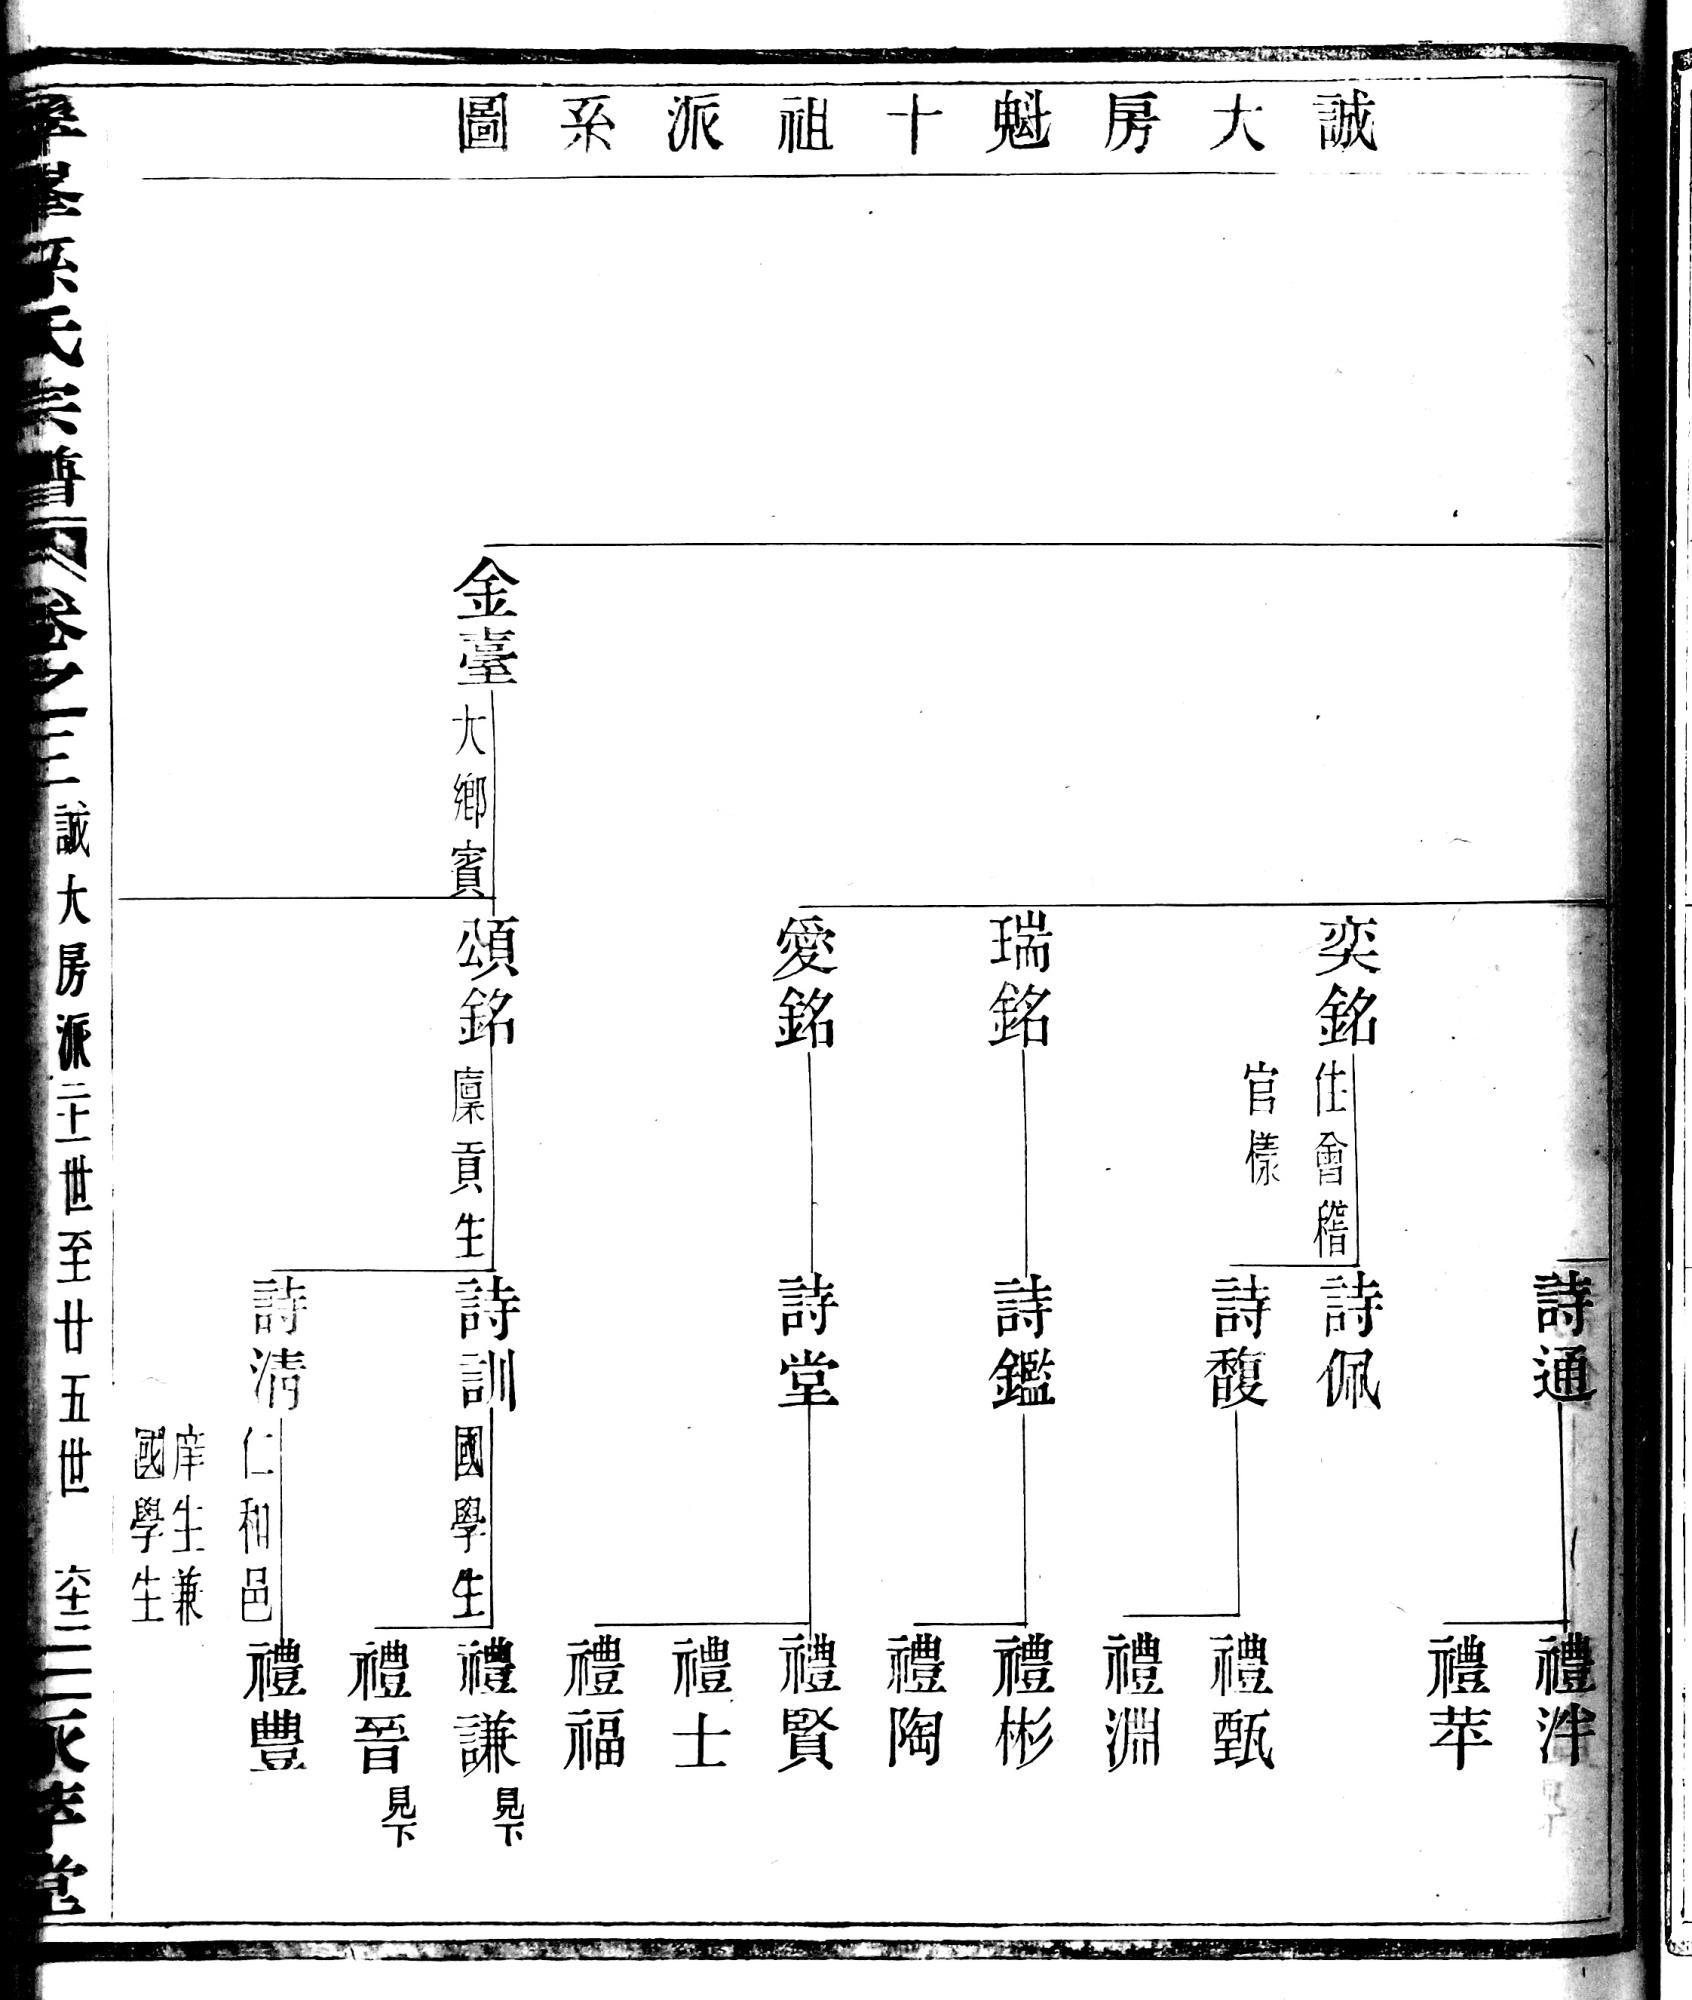 誠大房魁十祖派系圖
金臺
大鄉賓
奕銘
住會稽
官樣
瑞銘
愛銘
頌銘
廩貢生
詩通
詩佩
詩馥
詩鑑
詩堂
詩訓
國學生
詩清
仁和邑
庠生兼
國學生
禮泮
禮苹
禮甄
禮淵
禮彬
禮陶
禮賢
禮士
禮福
禮謙
見下
禮晉
見下
禮豐
孫氏宗譜
卷之三
誠大房派二十一世至廿五世
六十三
萃堂